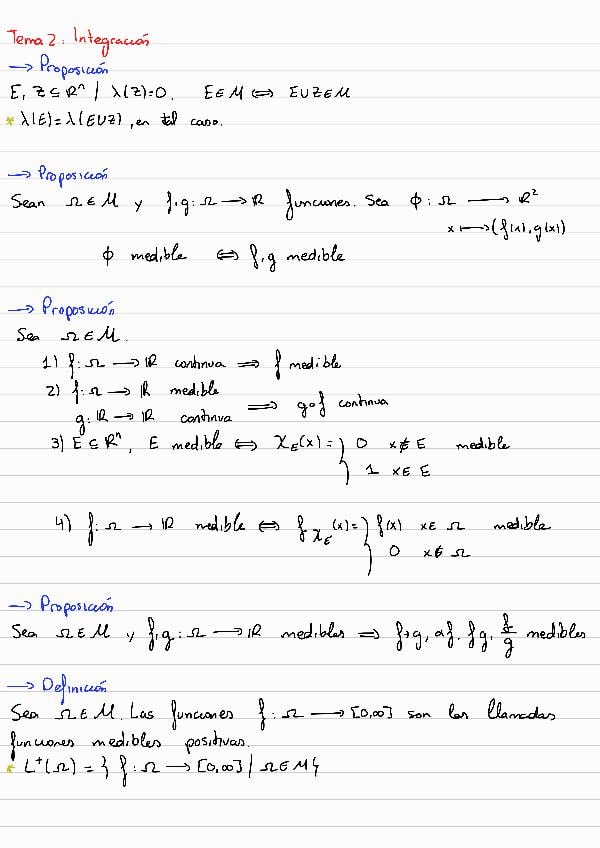 Tema 2: Integración
→ Proposición
E, Z ⊆ ℝⁿ / λ(Z)=0. E∈M ⟺ E∪Z∈M
* λ(E)=λ(E∪Z), en tal caso.
→ Proposición
Sean Ω∈M y f,g: Ω → ℝ funciones. Sea ϕ: Ω → ℝ²
x ⟼ (f(x), g(x))
ϕ medible ⟺ f,g medible
→ Proposición
Sea Ω∈M.
1) f: Ω → ℝ continua ⟹ f medible
2) f: Ω → ℝ medible
g: ℝ → ℝ continua ⟹ g∘f continua
3) E⊆ℝⁿ, E medible ⟺ χ_E(x) = { 0 x∉E medible
1 x∈E
4) f: Ω → ℝ medible ⟺ fχ_E(x) = { f(x) x∈Ω medible
0 x∉Ω
→ Proposición
Sea Ω∈M y f,g: Ω → ℝ medibles ⟹ f+g, αf, fg, f/g medibles
→ Definición
Sea Ω∈M. Las funciones f: Ω → [0,∞] son las llamadas
funciones medibles positivas.
* L⁺(Ω) = { f: Ω → [0,∞] / Ω∈M }